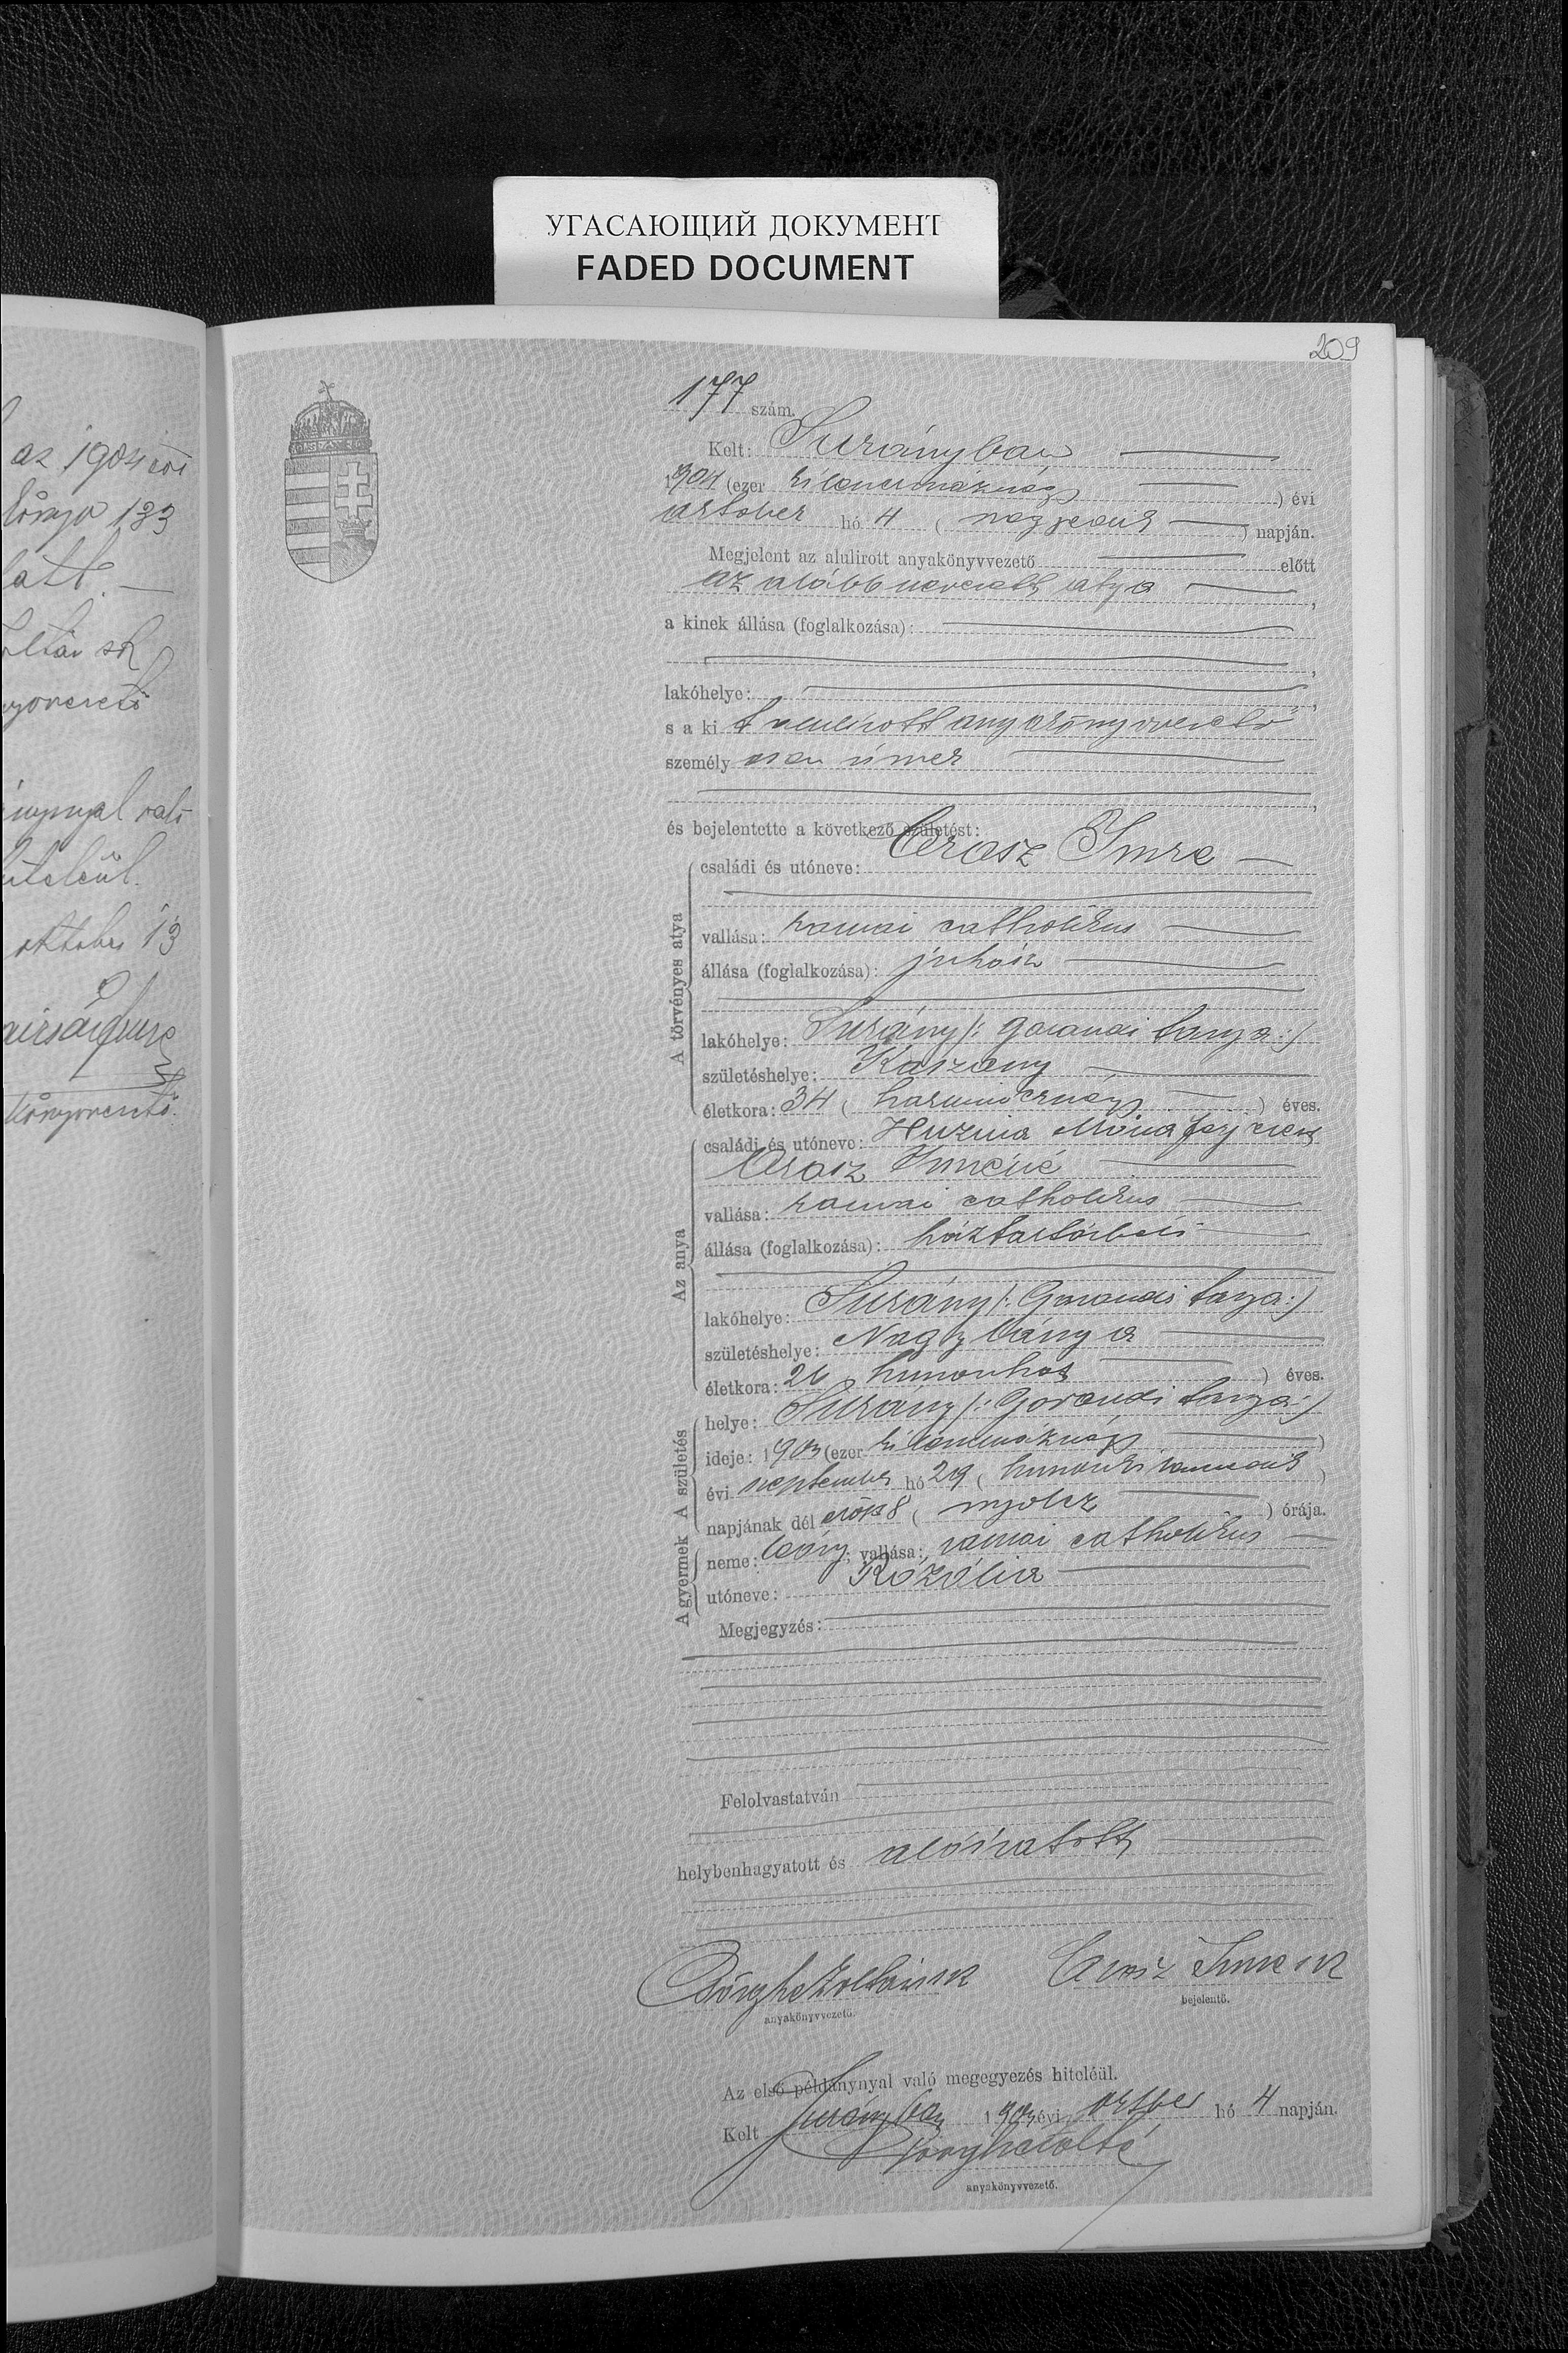 УГАСАЮЩИЙ ДОКУМЕНТ
FADED DOCUMENT
209
az 1904 évi
133
att.
oktober 13
177 szám.
Kelt: Surányban
1904 (ezer kilenczszáznégy) évi
october hó 4 (negyedik) napján.
Megjelent az alulirott anyakönyvvezető előtt
az alább nevezett atya,
a kinek állása (foglalkozása):
lakóhelye:
s a kit alulirott anyakönyvvezető
személyesen ismer
és bejelentette a következő születést:
A törvényes atya
családi és utóneve: Orosz Imre
vallása: romai catholikus
állása (foglalkozása): juhász
lakóhelye: Surány (: Gorondi tanya :)
születéshelye: Kaszony
életkora: 34 (harmincznégy) éves.
Az anya
családi és utóneve: Huzma Mária férjezett
Orosz Imréné
vallása: romai catholikus
állása (foglalkozása): háztartásbeli
lakóhelye: Surány (: Gorondi tanya :)
születéshelye: Nagy bánya
életkora: 26 huszonhat) éves.
A születés
helye: Surány (: Gorondi tanya :)
ideje: 1904 (ezer kilenczszáznégy)
évi september hó 29 (huszonkilenczedik)
napjának dél előtt 8 (nyolcz) órája.
A gyermek
neme: leány; vallása: romai catholikus
utóneve: Rozália
Megjegyzés:
Felolvastatván
helybenhagyatott és aláiratott
Orosz Imre sk
anyakönyvvezető. bejelentő.
Az első példánynyal való megegyezés hiteléül.
Kelt Surányban 1904 évi october hó 4 napján.
anyakönyvvezető.